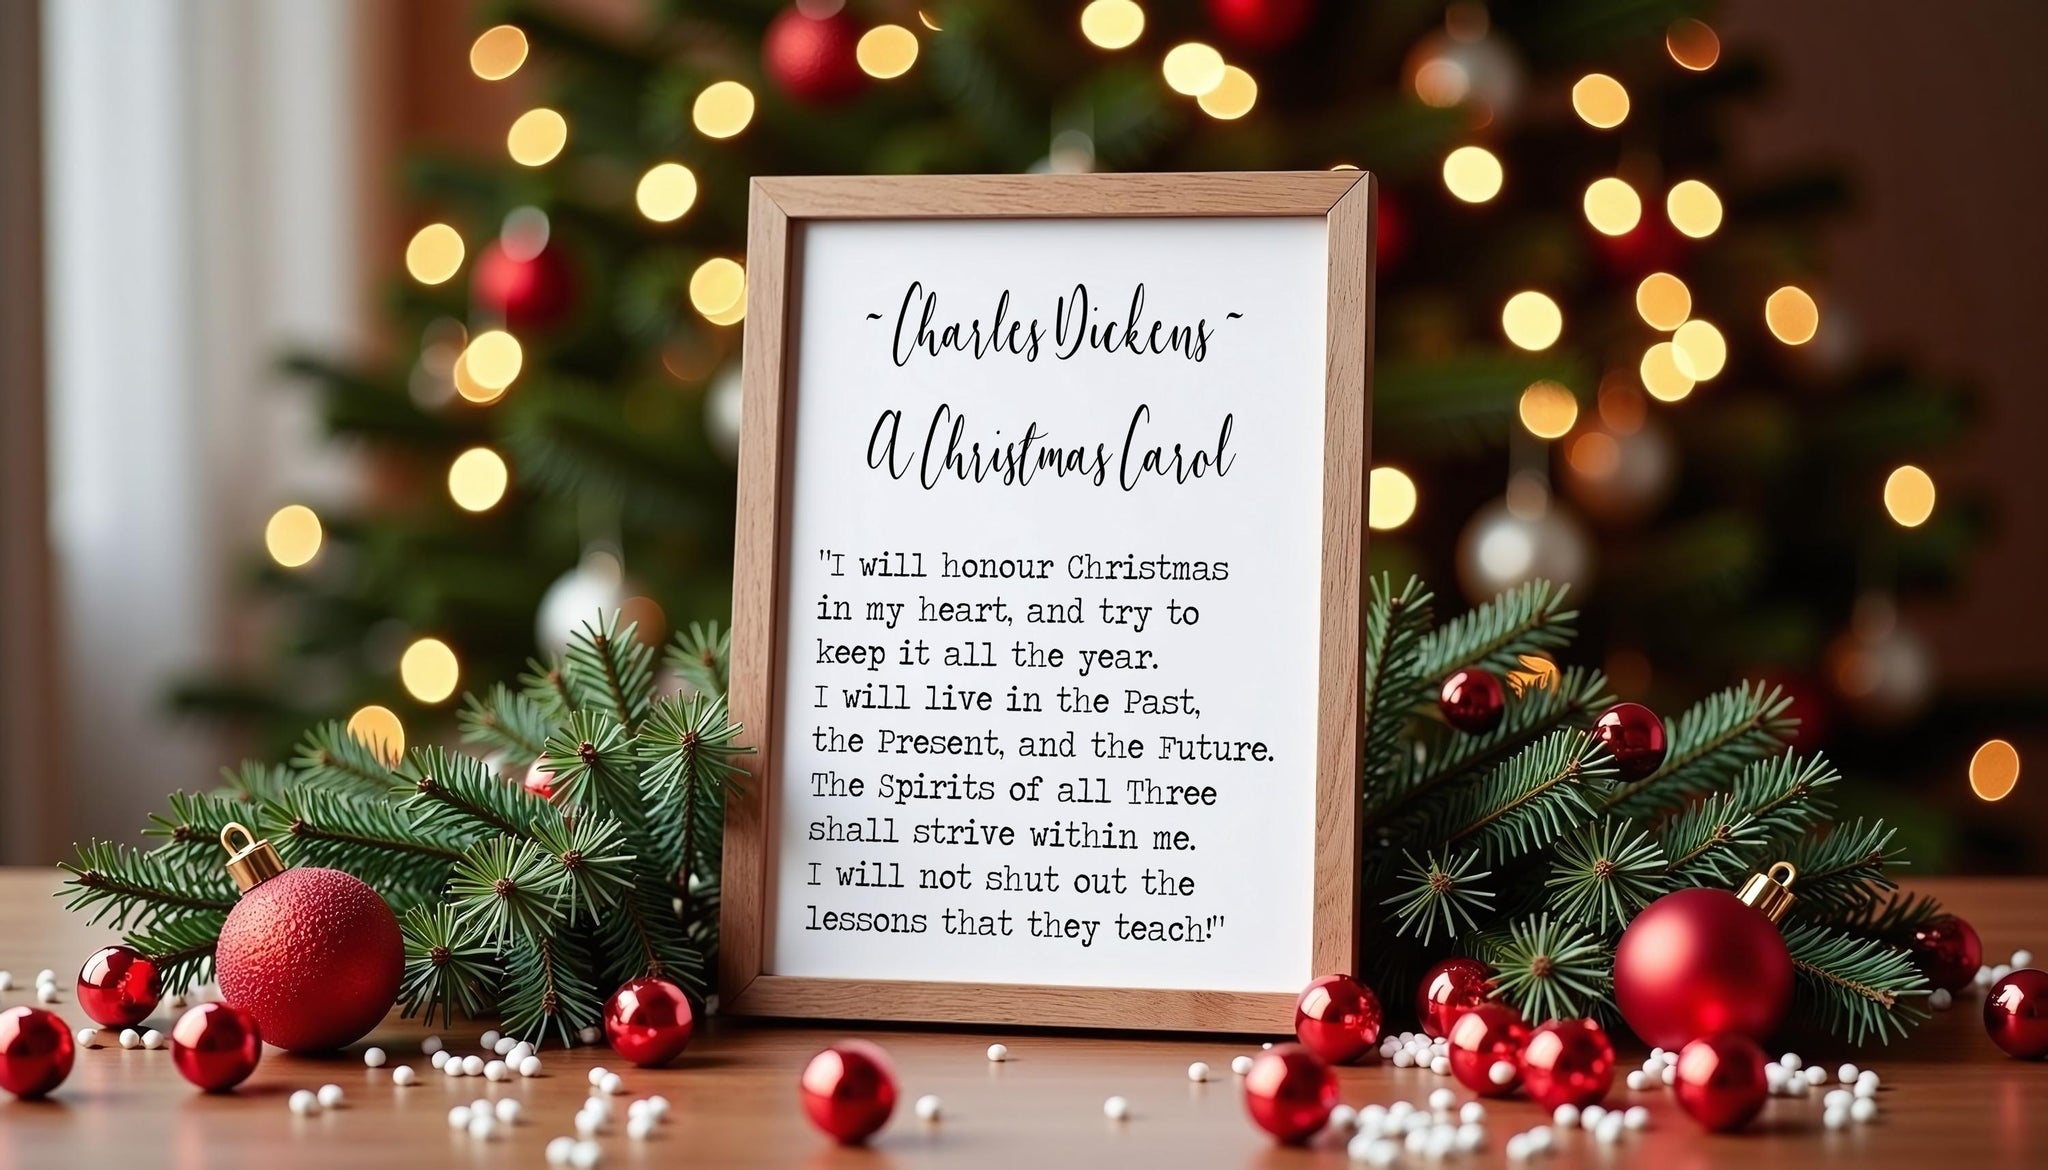 ~ Charles Dickens ~
A Christmas Carol
"I will honour Christmas
in my heart, and try to
keep it all the year.
I will live in the Past,
the Present, and the Future.
The Spirits of all Three
shall strive within me.
I will not shut out the
lessons that they teach!"